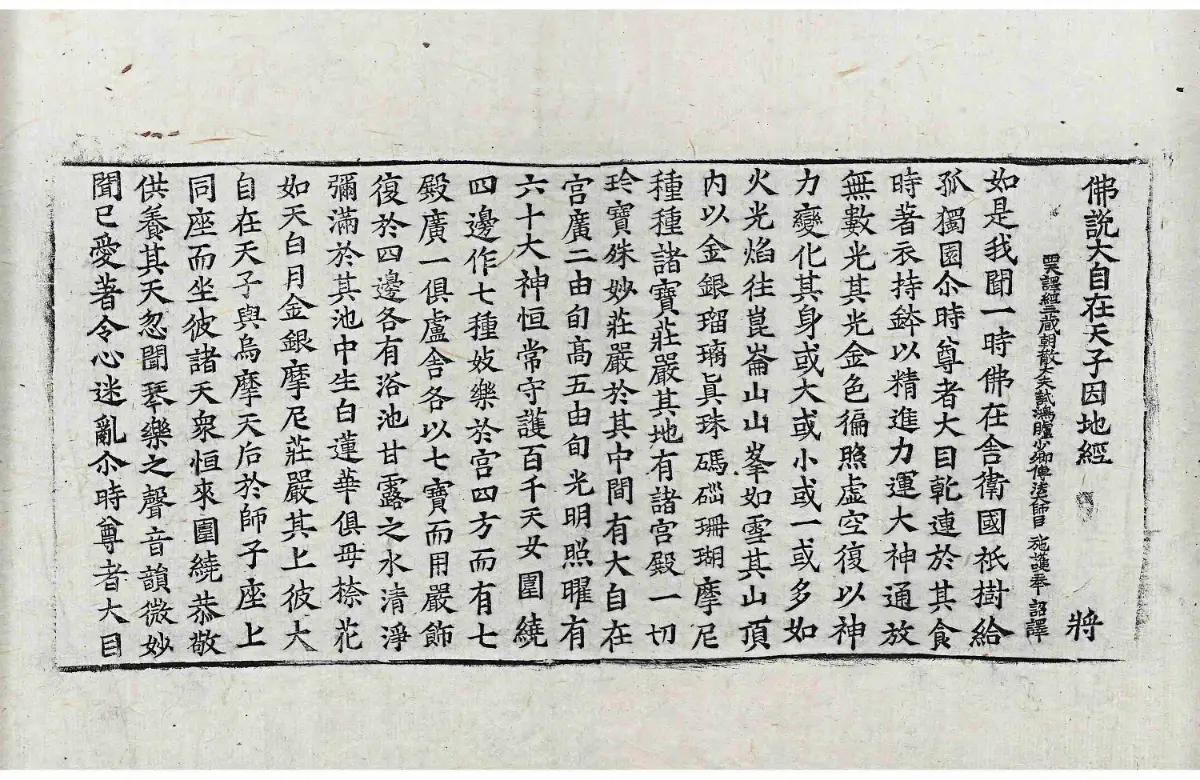 佛說大自在天子因地經 將
西天譯經三藏朝散大夫試鴻臚少卿傳法大師臣 施護奉 詔譯
如是我聞一時佛在舎衛國祇樹給
孤獨園尒時尊者大目乹連於其食
時著衣持鉢以精進力運大神通放
無數光其光金色徧照虛空復以神
力變化其身或大或小或一或多如
火光焰往崑崙山山峯如雪其山頂
內以金銀瑠璃真珠碼碯珊瑚摩尼
種種諸寶莊嚴其地有諸宮殿一切
玲寶殊妙莊嚴於其中間有大自在
宮廣二由旬髙五由旬光明照曜有
六十大神恒常守護百千天女圍繞
四邊作七種妓樂於宮四方而有七
殿廣一俱盧舎各以七寶而用嚴飾
復於四邊各有浴池甘露之水清淨
彌滿於其池中生白蓮華俱毋㮈花
如天白月金銀摩尼莊嚴其上彼大
自在天子與烏摩天后於師子座上
同座而坐彼諸天衆恒來圍繞恭敬
供養其天忽聞琴樂之聲音韻微妙
聞已愛著令心迷亂尒時尊者大目